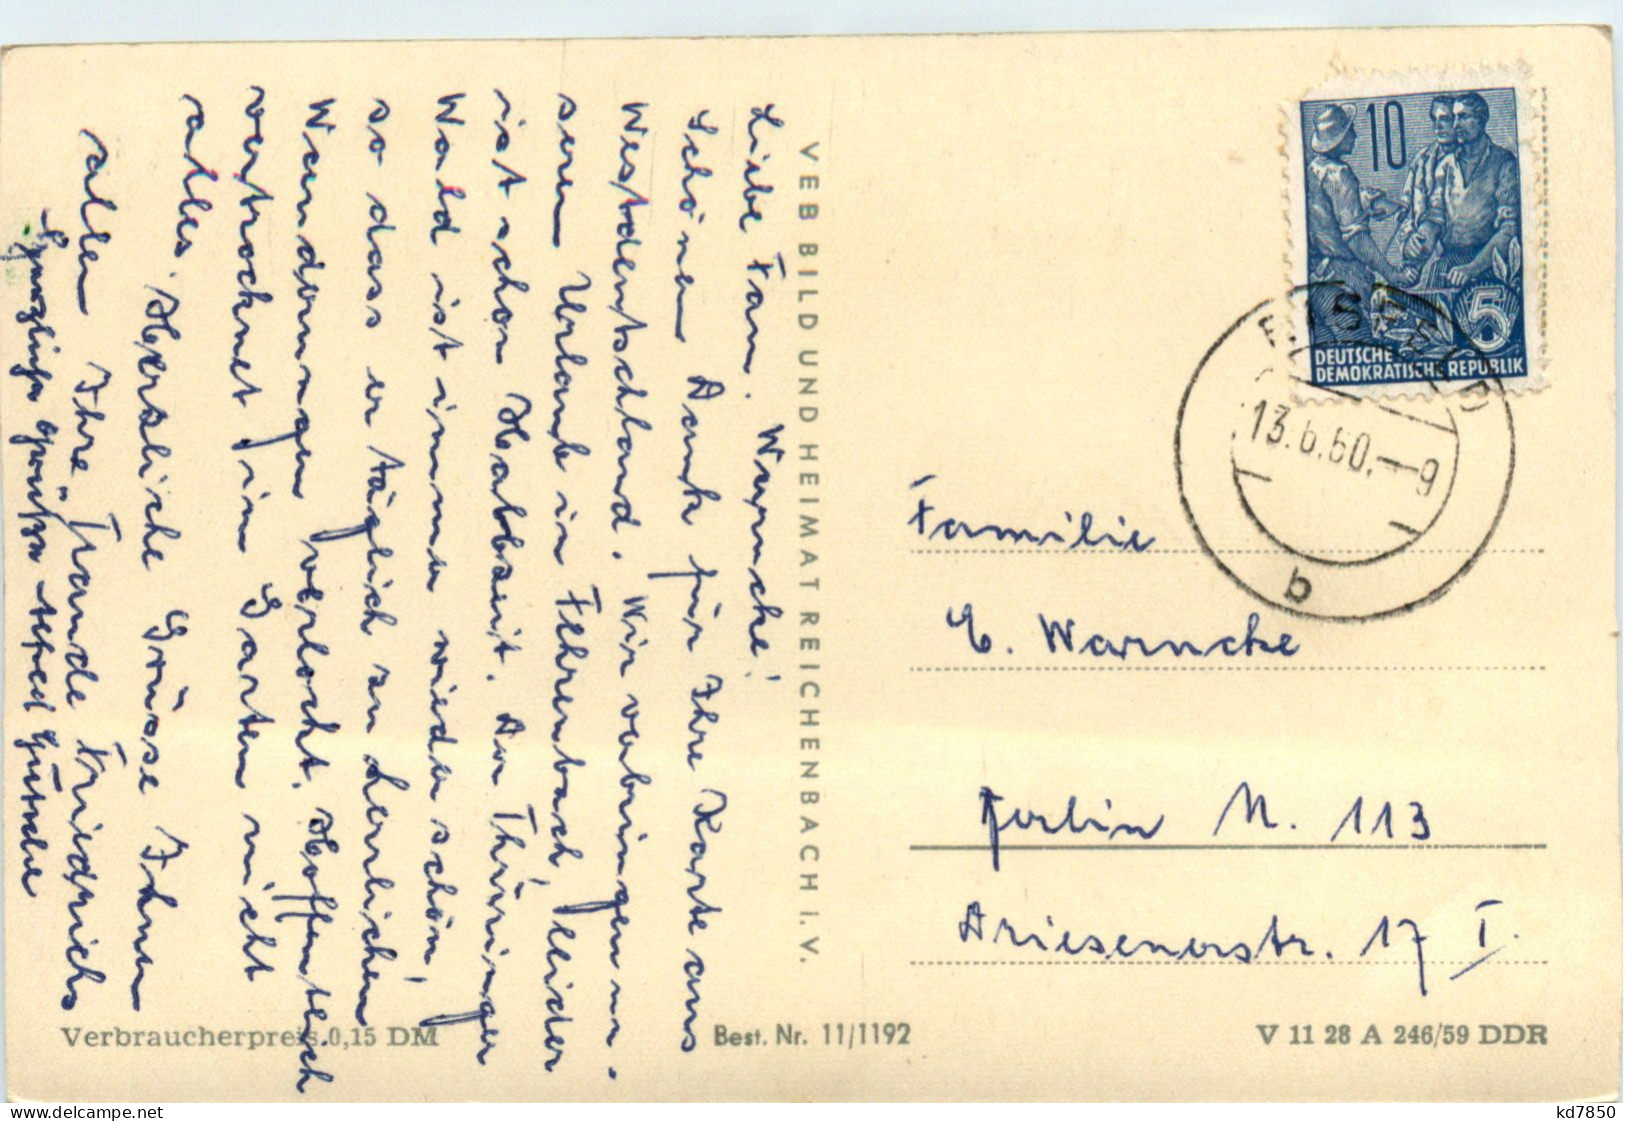 Liebe Fam. Warncke!
Schönen Dank für Ihre Karte aus
Westdeutschland. Wir verbringen un-
seren Urlaub in Fehrenbach, leider
ist schon Halbzeit. Der Thüringer
Wald ist immer wieder schön,
so dass er täglich zu herrlichen
Wanderungen verlockt. Hoffentlich
vertrocknet im Garten nicht
alles. Herzliche Grüsse Ihnen
allen Ihre Traude Friedrichs
VEB BILD UND HEIMAT REICHENBACH I. V.
10
5
DEUTSCHE
DEMOKRATISCHE REPUBLIK
EISFELD
13.6.60.-9
b
Familie
E. Warncke
Berlin N. 113
Driesenerstr. 17 I.
Verbraucherpreis 0,15 DM
Best. Nr. 11/1192
V 11 28 A 246/59 DDR
www.delcampe.net
kd7850